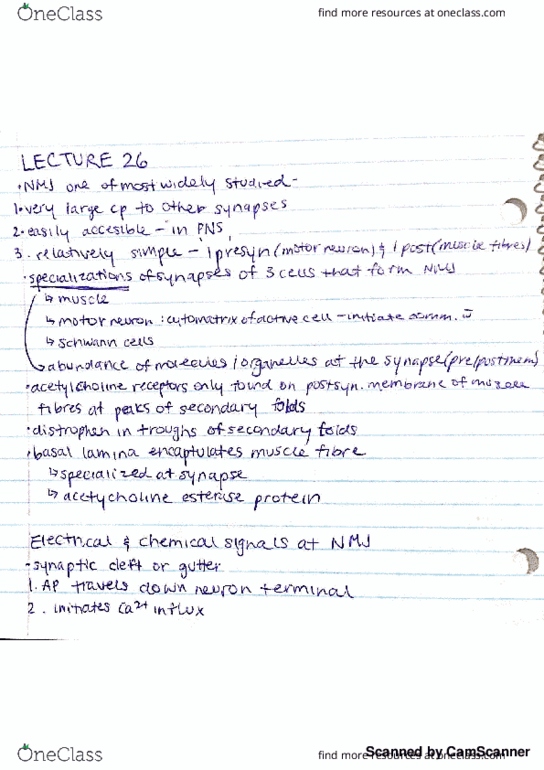 OneClass
find more resources at oneclass.com
LECTURE 26
•NMJ one of most widely studied-
1•very large cp to other synapses
2•easily accesible - in PNS
3. relatively simple - 1 presyn (motor neuron) & 1 post (muscle fibres)
•specializations of synapses of 3 cells that form NMJ
↳ muscle
↳ motor neuron : cytomatrix of active cell - initiate comm.
↳ schwann cells
↳ abundance of molecules/organelles at the synapse (pre/postmem)
•acetylcholine receptors only found on postsyn. membrane of muscle
fibres at peaks of secondary folds
•distrophen in troughs of secondary folds
•basal lamina encaptulates muscle fibre
↳ specialized at synapse
↳ acetycholine esterase protein
Electrical & chemical signals at NMJ
-synaptic cleft or gutter
1. AP travels down neuron terminal
2. initiates Ca²⁺ influx
OneClass
find more resources at oneclass.com
Scanned by CamScanner